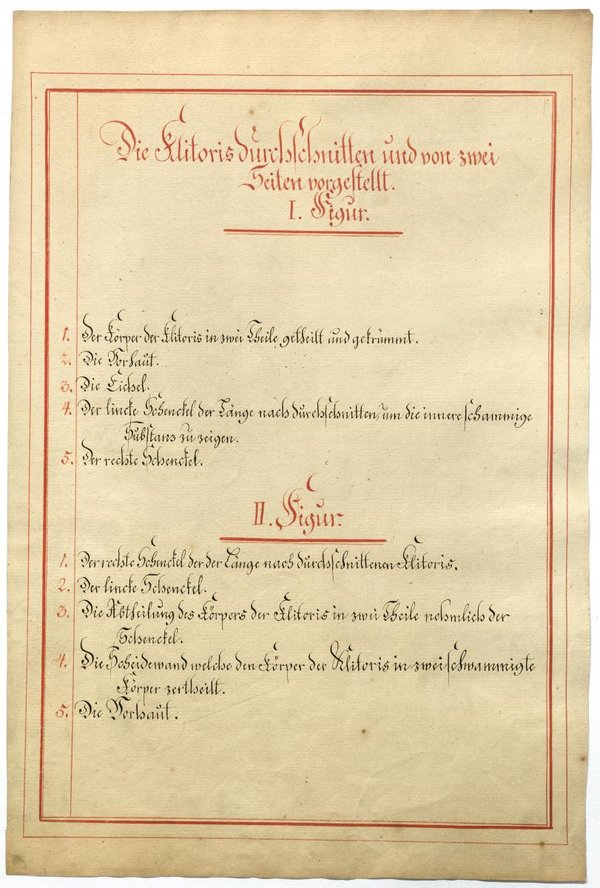 Die Klitoris durchschnitten und von zwei
Seiten vorgestellt.
I. Figur.
1. Der Körper der Klitoris in zwei Theile getheilt und gekrümmt.
2. Die Vorhaut.
3. Die Eichel.
4. Der lincke Schenckel der Länge nach durchschnitten, um die innere schammige
Substanz zu zeigen.
5. Der rechte Schenckel.
II. Figur.
1. Der rechte Schenckel der der Länge nach durchschnittenen Klitoris.
2. Der lincke Schenckel.
3. Die Abtheilung des Körpers der Klitoris in zwei Theile nehmlich der
Schenckel.
4. Die Scheidewand welche den Körper der Klitoris in zwei schwammigte
Körper zertheilt.
5. Die Vorhaut.